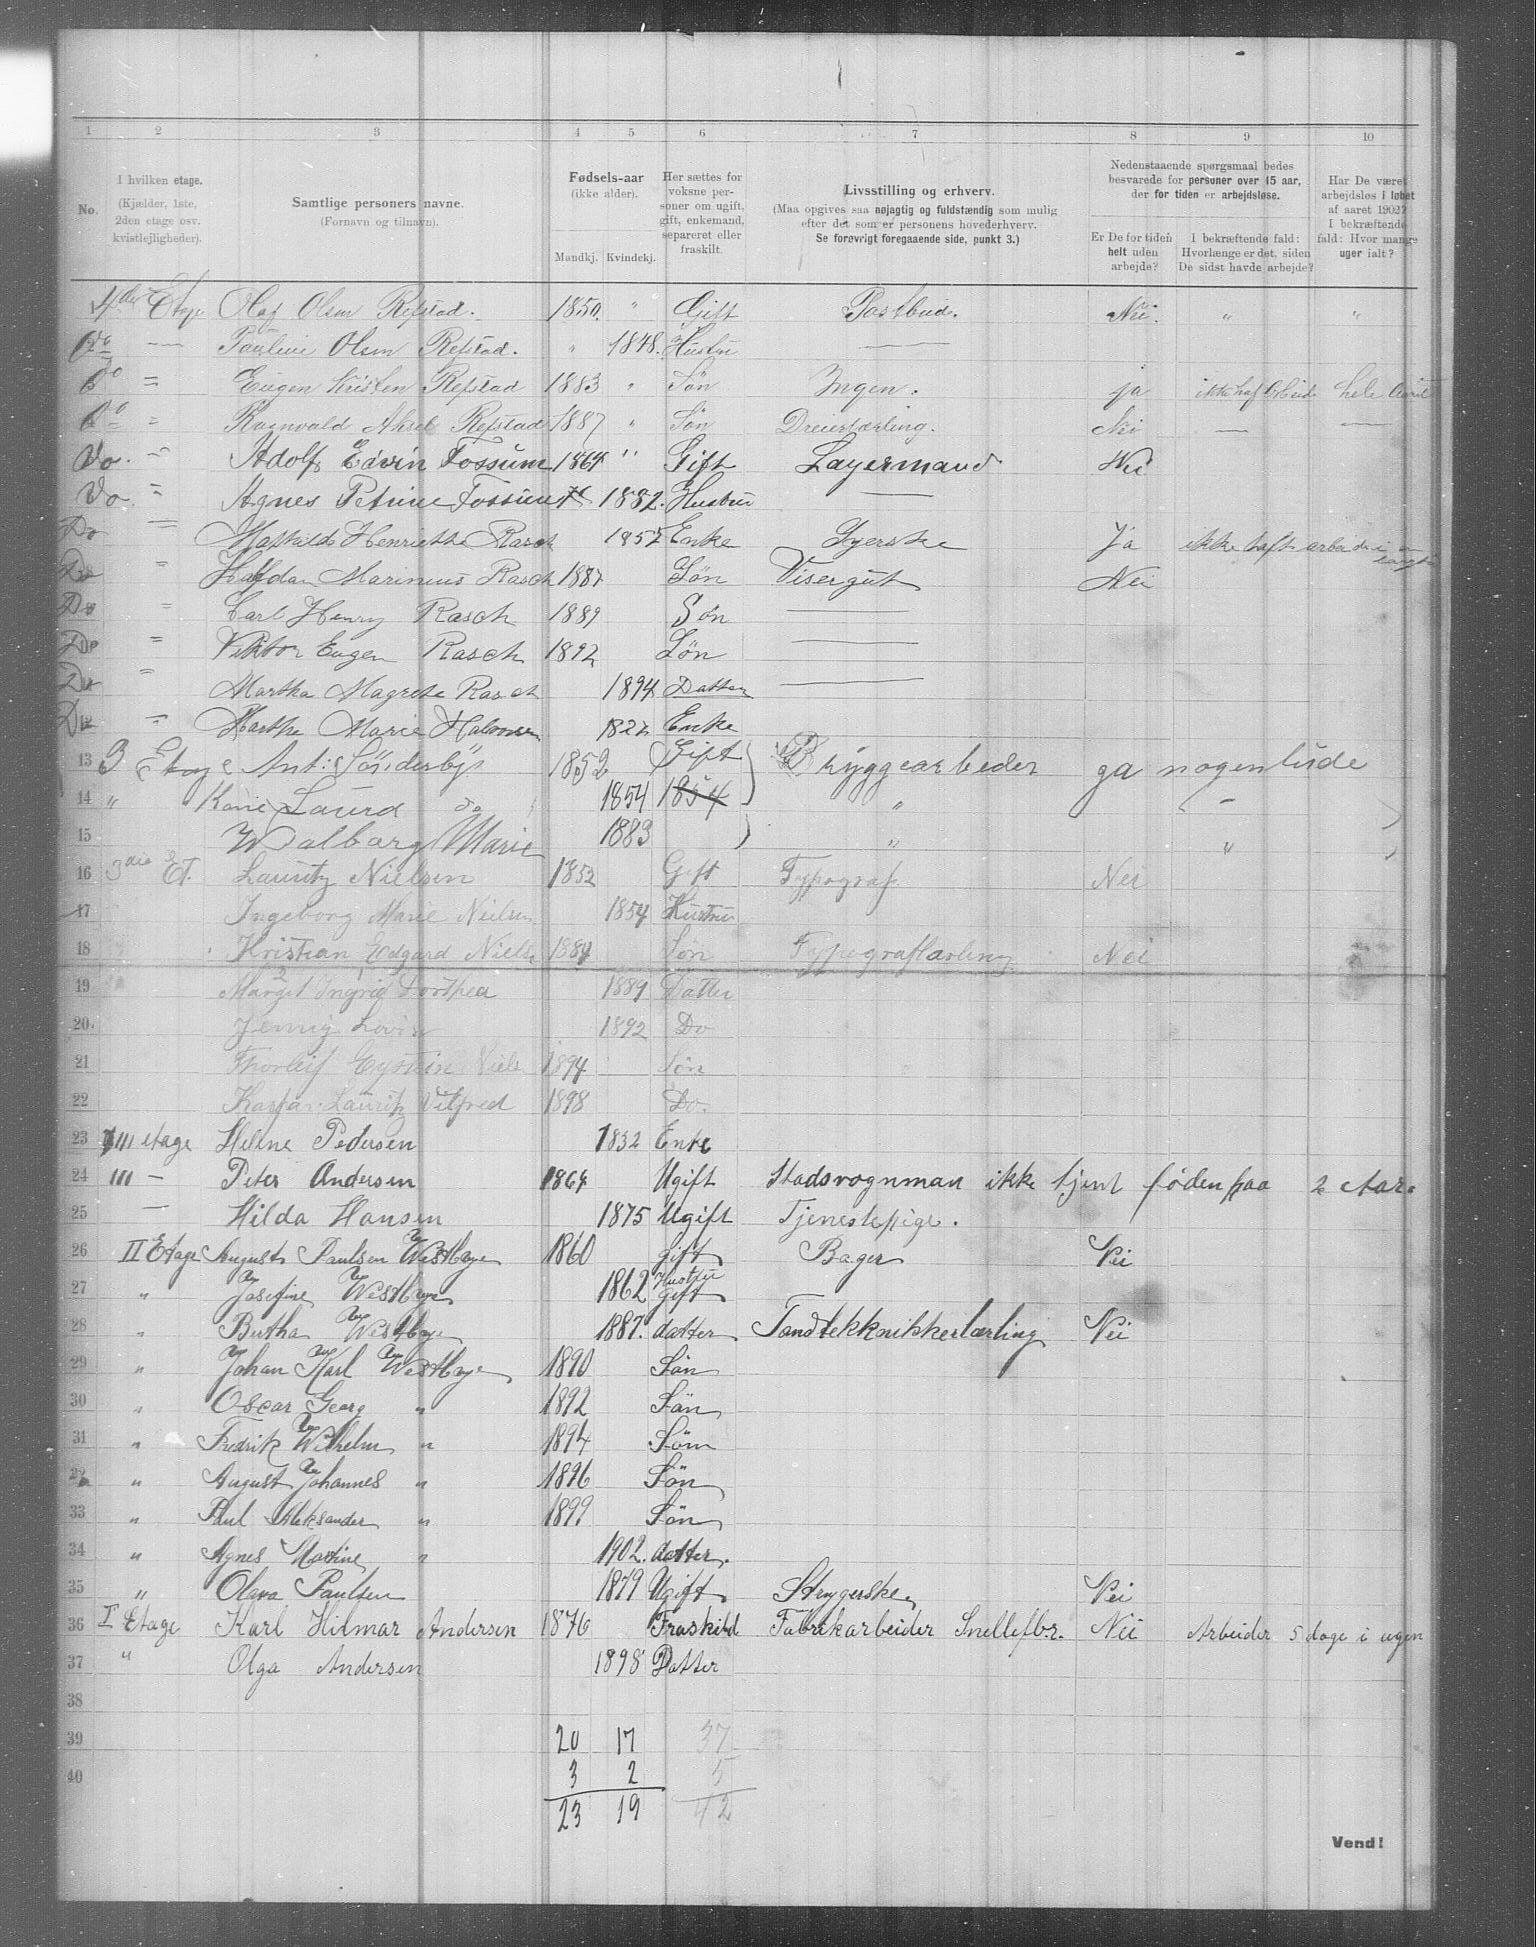 1 2 3 4 5 6 7 8 9 10
No.
I hvilken etage. (Kjælder, 1ste, 2den etage osv. kvistlejligheder).
Samtlige personers navne. (Fornavn og tilnavn).
Fødsels-aar (ikke alder). Mandkj. Kvindekj.
Her sættes for voksne personer om ugift, gift, enkemand, separeret eller fraskilt.
Livsstilling og erhverv. (Maa opgives saa nøjagtig og fuldstændig som mulig efter det som er personens hovederhverv. Se forøvrigt foregaaende side, punkt 3.)
Nedenstaaende spørgsmaal bedes besvarede for personer over 15 aar, der for tiden er arbejdsløse.
Er De for tiden helt uden arbejde?
I bekræftende fald: Hvorlænge er det, siden De sidst havde arbejde?
Har De været arbejdsløs i løbet af aaret 1902? I bekræftende fald: Hvor mange uger ialt?
4de Etage Olaf Olsen Refstad. 1850. " Gift Postbud. Nei. " "
Do — Pauline Olsen Refstad. " 1848. Hustru —
Do = Eugen Kristen Refstad 1883 " Søn Ingen. ja ikke haf Arbeide hele Aaret
Do " Ragnvald Aksel Refstad 1887 " Søn Dreierlærling. Nei — —
Do. " Adolf Edvin Fossum 1864 " Gift Lagermand Nei
Do. = Agnes Petrine Fossum 1882. Hustru —
Do = Mathilde Henriette Rasch 1852 Enke Syerske Ja ikke haft arbeide i
Do = Halfdan Marinius Rasch 1887 Søn Visergut Nei
Do = Carl Henry Rasch 1889 Søn —
Do = Viktor Eugen Rasch 1892 Søn —
Do = Martha Magrete Rasch 1894 Datter —
Do = Marthe Marie Halvorsen 1822 Enke
13 3 Etage Ant: Sönderby 1852 Gift Bryggearbeder ga nogentide
14 " Karie Laura do 1854 1854 " "
15 Walborg Marie 1883 " "
16 3die Et. Lauritz Nielsen 1852 Gift Typograf Nei
17 Ingeborg Marie Nielsen 1854 Hustru
18 Kristian Edgard Niels. 1884 Søn Typograflærling Nei
19 Margit Ingrid Dorthea 1889 Datter
20. Jenny Lovise 1892 Do
21 Thorleif Eystein Niels. 1894 Søn
22 Kaspar Lauritz Vilfred 1898 Do.
23 III etage Helene Pedersen 1832 Enke
24 III — Peter Andersen 1864 Ugift Stadsvognman ikke tjent føden paa 2 Aar.
25 — Hilda Hansen 1875 Ugift Tjenestepige.
26 II Etage August Paulsen Westbye 1860 gift Bager Nei
27 " Josefine Westbye 1862 Hustru gift
28 " Bertha Westbye 1887. datter Tandtekknikkerlærling Nei
29 " Johan Karl Westbye 1890 Søn
30 " Oscar Georg " 1892 Søn
31 " Fredrik Wilhelm " 1894 Søn
32 " August Johannes " 1896 Søn
33 " Paul Aleksander " 1899 Søn
34 " Agnes Martine " 1902. datter.
35 " Olava Paulsen 1879 Ugift Strygerske Nei
36 I Etage Karl Hilmar Andersen 1876 Fraskild Fabrikarbeider Snellefbr. Nei Arbeider 5 dage i ugen
37 " Olga Andersen 1898 Datter
38
39 20 17 37
40 3 2 5
23 19 42
Vend!